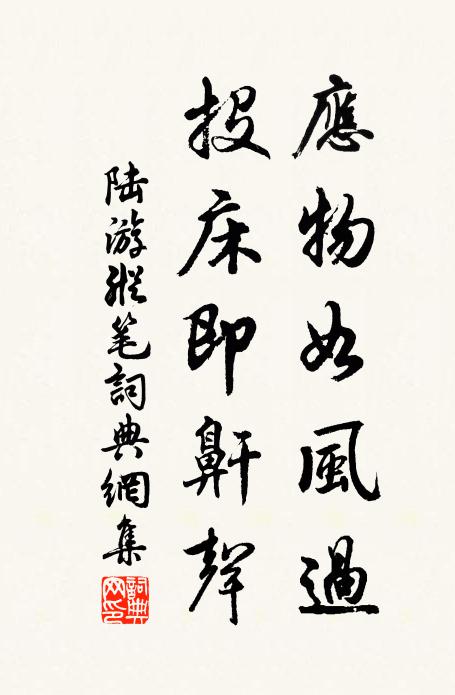 應物如風過
投床即鼾聲
陆游縱笔詞典網集
詞典网印